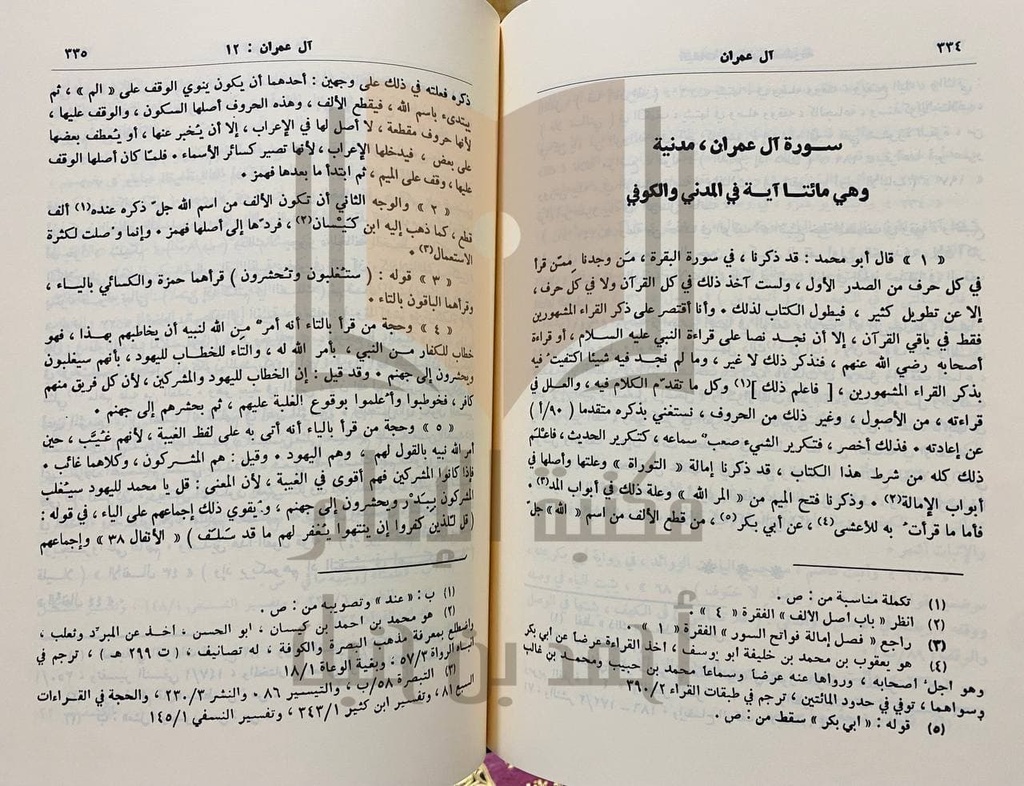 ٣٣٤
آل عمران
سورة آل عمران ، مدنية
وهي مائتا آية في المدني والكوفي
« ١ » قال أبو محمد : قد ذكرنا ، في سورة البقرة ، مَن وجدنا مِمّن قرأ
في كل حرف من الصدر الأول ، ولست آخذ ذلك في كل القرآن ولا في كل حرف ،
إلا عن تطويل كثير ، فيطول الكتاب لذلك • وأنا أقتصر على ذكر القراء المشهورين
فقط في باقي القرآن ، إلا أن نجد نصا على قراءة النبي عليه السلام ، أو قراءة
أصحابه رضي الله عنهم ، فنذكر ذلك لا غير ، وما لم نجد فيه شيئا اكتفيت فيه
بذكر القراء المشهورين ، [ فاعلم ذلك ](١) وكل ما تقدّم الكلام فيه ، والعلل في
قراءته ، من الأصول ، وغير ذلك من الحروف ، نستغني بذكره متقدما ( ٩٠/أ )
عن إعادته • فذلك أخصر ، فتكرير الشيء صعبٌ سماعه ، كتكرير الحديث ، فاعلم
ذلك كله من شرط هذا الكتاب ، قد ذكرنا إمالة « التوراة » وعلتها وأصلها في
أبواب الإمالة(٢) • وذكرنا فتح الميم من « المر الله » وعلة ذلك في أبواب المد(٣) •
فأما ما قرأتُ به للأعشى(٤) ، عن أبي بكر(٥) ، من قطع الألف من اسم « الله » جلّ
(١) تكملة مناسبة من : ص •
(٢) انظر « باب أصل الالف » الفقرة « ٤ » •
(٣) راجع « فصل إمالة فواتح السور » الفقرة « ١ » •
(٤) هو يعقوب بن محمد بن خليفة أبو يوسف ، أخذ القراءة عرضا عن أبي بكر
وهو اجلّ أصحابه ، ورواها عنه عرضا وسماعا محمد بن حبيب ومحمد بن غالب
وسواهما ، توفي في حدود المائتين ، ترجم في طبقات القراء ٣٩٠/٢
(٥) قوله : « ابي بكر » سقط من : ص •
آل عمران : ١٢
٣٣٥
ذكره فعلته في ذلك على وجهين : أحدهما أن يكون ينوي الوقف على « الم » ، ثم
يبتدىء باسم الله ، فيقطع الألف ، وهذه الحروف أصلها السكون ، والوقف عليها ،
لأنها حروف مقطعة ، لا أصل لها في الإعراب ، إلا أن يُخبر عنها ، أو يُعطف بعضها
على بعض ، فيدخلها الإعراب ، لأنها تصير كسائر الأسماء • فلمّا كان أصلها الوقف
عليها ، وقف على الميم ، ثم ابتدأ ما بعدها فهمز •
« ٢ » والوجه الثاني أن تكون الألف من اسم الله جلّ ذكره عنده(١) ألف
قطع ، كما ذهب إليه ابن كَيْسان(٢) ، فردّها إلى أصلها فهمز • وإنما وُصلت لكثرة
الاستعمال(٣) •
« ٣ » قوله : ( ستُغلبون وتُحشرون ) قرأهما حمزة والكسائي بالياء ،
وقرأهما الباقون بالتاء •
« ٤ » وحجة من قرأ بالتاء أنه أمرٌ مِن الله لنبيه أن يخاطبهم بهذا ، فهو
خطاب للكفار من النبي ، بأمر الله له ، والتاء للخطاب لليهود ، بأنهم سيغلبون
ويحشرون إلى جهنم • وقد قيل : إن الخطاب لليهود والمشركين ، لأن كل فريق منهم
كافر ، فخوطبوا وأُعلموا بوقوع الغلبة عليهم ، ثم بحشرهم إلى جهنم •
« ٥ » وحجة من قرأ بالياء أنه أتى به على لفظ الغيبة ، لأنهم غُيَّب ، حين
أمر الله نبيه بالقول لهم ، وهم اليهود • وقيل : هم المشركون ، وكلاهما غائب •
فإذا كانوا المشركين فهم أقوى في الغيبة ، لأن المعنى : قل يا محمد لليهود سيُغلب
المشركون بِبَدْر ويحشرون إلى جهنم ، ويُقوي ذلك إجماعهم على الياء ، في قوله :
( قل للذين كفروا إن ينتهوا يُغفر لهم ما قد سَلَف ) « الأنفال ٣٨ » وإجماعهم
(١) ب : « عند » وتصويبه من : ص •
(٢) هو محمد بن احمد بن كيسان ، ابو الحسن ، أخذ عن المبرّد وثعلب ،
واضطلع بمعرفة مذهب البصرة والكوفة ، له تصانيف ، ( ت ٢٩٩ هـ ) ، ترجم في
انباه الرواة ٥٧/٣ ، وبغية الوعاة ١٨/١
(٣) التبصرة ٥٨/ب ، والتيسير ٨٦ ، والنشر ٢٣٠/٢ ، والحجة في القراءات
السبع ٨١ ، وتفسير ابن كثير ٣٤٣/١ ، وتفسير النسفي ١٤٥/١